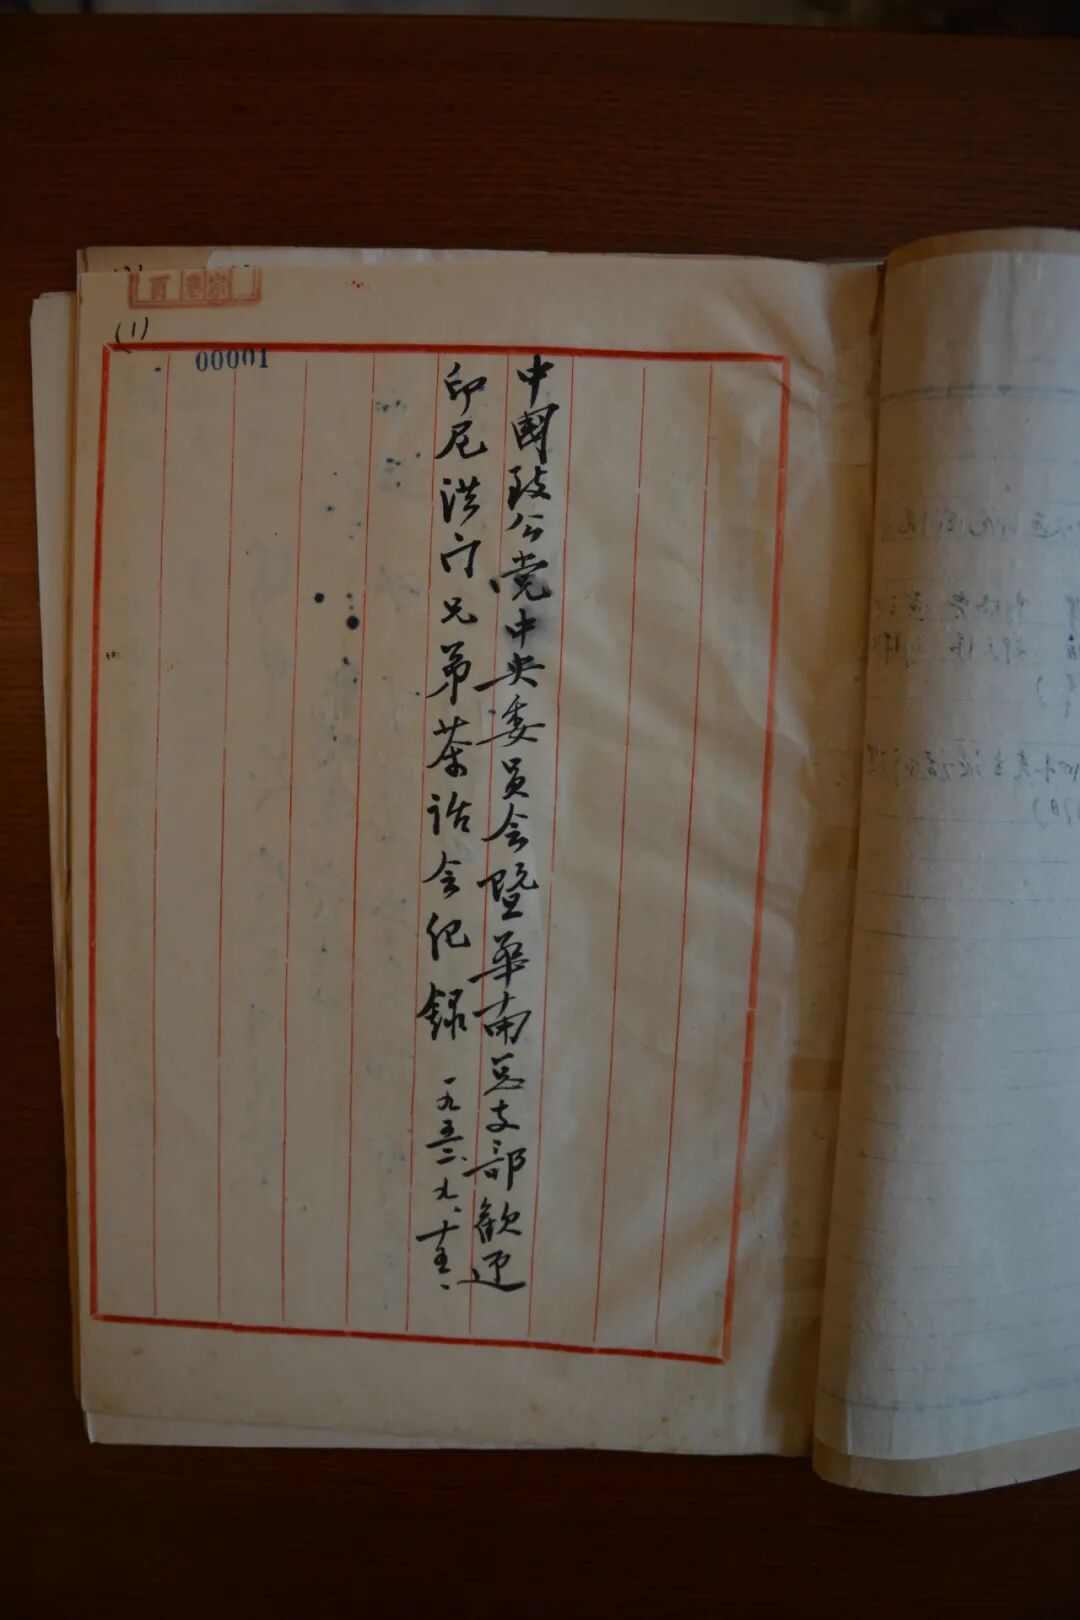 中國致公党中央委员会暨华南总支部歡迎
印尼洪门兄弟茶话会纪録 一九五二、九、十五、
宗卷頁
(1)
00001